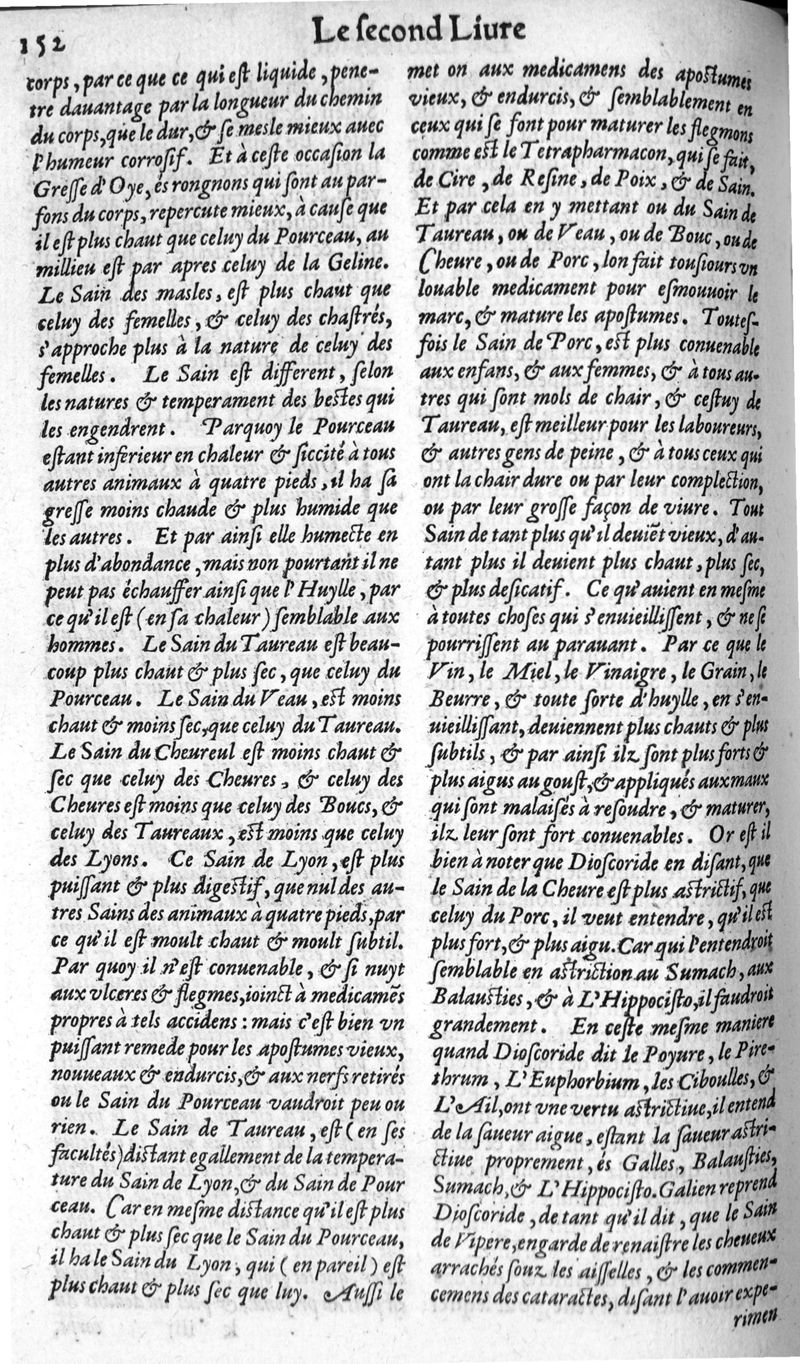 152
Le ſecond Liure
corps, par ce que ce qui eſt liquide, pene-
tre dauantage par la longueur du chemin
du corps, que le dur, & ſe meſle mieux auec
l'humeur corroſif. Et à ceſte occaſion la
Greſſe d'Oye, és rongnons qui ſont au par-
fons du corps, repercute mieux, à cauſe que
il eſt plus chaut que celuy du Pourceau, au
millieu eſt par apres celuy de la Geline.
Le Sain des maſles, eſt plus chaut que
celuy des femelles, & celuy des chaſtrés,
s'approche plus à la nature de celuy des
femelles. Le Sain eſt different, ſelon
les natures & temperament des beſtes qui
les engendrent. Parquoy le Pourceau
eſtant inferieur en chaleur & ſiccité à tous
autres animaux à quatre pieds, il ha ſa
greſſe moins chaude & plus humide que
les autres. Et par ainſi elle humecte en
plus d'abondance, mais non pourtant il ne
peut pas échauffer ainſi que l'Huylle, par
ce qu'il eſt (en ſa chaleur) ſemblable aux
hommes. Le Sain du Taureau eſt beau-
coup plus chaut & plus ſec, que celuy du
Pourceau. Le Sain du Veau, eſt moins
chaut & moins ſec, que celuy du Taureau.
Le Sain du Cheureul eſt moins chaut &
ſec que celuy des Cheures, & celuy des
Cheures eſt moins que celuy des Boucs, &
celuy des Taureaux, eſt moins que celuy
des Lyons. Ce Sain de Lyon, eſt plus
puiſſant & plus digeſtif, que nul des au-
tres Sains des animaux à quatre pieds, par
ce qu'il eſt moult chaut & moult ſubtil.
Par quoy il n'eſt conuenable, & ſi nuyt
aux vlceres & flegmes, ioinct à medicamẽs
propres à tels accidens : mais c'eſt bien vn
puiſſant remede pour les apoſtumes vieux,
nouueaux & endurcis, & aux nerfs retirés
ou le Sain du Pourceau vaudroit peu ou
rien. Le Sain de Taureau, eſt (en ſes
facultés) diſtant egallement de la tempera-
ture du Sain de Lyon, & du Sain de Pour
ceau. Car en meſme diſtance qu'il eſt plus
chaut & plus ſec que le Sain du Pourceau,
il ha le Sain du Lyon, qui (en pareil) eſt
plus chaut & plus ſec que luy. Auſſi le
met on aux medicamens des apoſtumes
vieux, & endurcis, & ſemblablement en
ceux qui ſe font pour maturer les flegmons
comme eſt le Tetrapharmacon, qui ſe fait,
de Cire, de Reſine, de Poix, & de Sain.
Et par cela en y mettant ou du Sain de
Taureau, ou de Veau, ou de Bouc, ou de
Cheure, ou de Porc, lon fait touſiours vn
louable medicament pour eſmouuoir le
marc, & mature les apoſtumes. Touteſ-
fois le Sain de Porc, eſt plus conuenable
aux enfans, & aux femmes, & à tous au-
tres qui ſont mols de chair, & ceſtuy de
Taureau, eſt meilleur pour les laboureurs,
& autres gens de peine, & à tous ceux qui
ont la chair dure ou par leur complection,
ou par leur groſſe façon de viure. Tout
Sain de tant plus qu'il deuiẽt vieux, d'au-
tant plus il deuient plus chaut, plus ſec,
& plus deſicatif. Ce qu'auient en meſme
à toutes choſes qui s'enuieilliſſent, & ne ſe
pourriſſent au parauant. Par ce que le
Vin, le Miel, le Vinaigre, le Grain, le
Beurre, & toute ſorte d'huylle, en s'en-
uieilliſſant, deuiennent plus chauts & plus
ſubtils, & par ainſi ilz ſont plus forts &
plus aigus au gouſt, & appliqués aux maux
qui ſont malaiſés à reſoudre, & maturer,
ilz leur ſont fort conuenables. Or eſt il
bien à noter que Dioſcoride en diſant, que
le Sain de la Cheure eſt plus aſtrictif, que
celuy du Porc, il veut entendre, qu'il eſt
plus fort, & plus aigu. Car qui l'entendroit
ſemblable en aſtriction au Sumach, aux
Balauſties, & à L'Hippociſto, il faudroit
grandement. En ceſte meſme maniere
quand Dioſcoride dit le Poyure, le Pire-
thrum, L'Euphorbium, les Ciboulles, &
L'Ail, ont vne vertu aſtrictiue, il entend
de la ſaueur aigue, eſtant la ſaueur aſtri-
ctiue proprement, és Galles, Balauſties,
Sumach, & L'Hippociſto. Galien reprend
Dioſcoride, de tant qu'il dit, que le Sain
de Vipere, engarde de renaiſtre les cheueux
arrachés ſouz les aiſſelles, & les commen-
cemens des cataractes, diſant l'auoir expe-
rimen